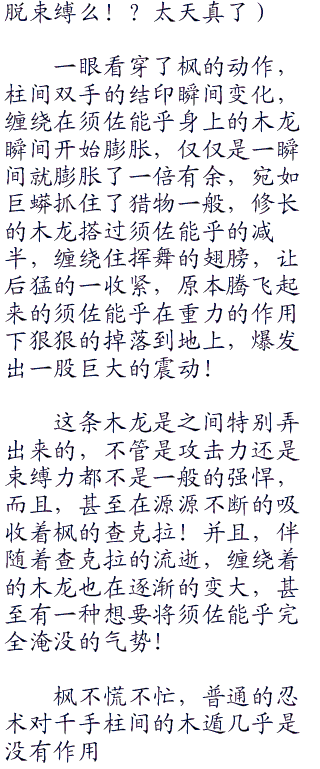 脱束缚么！？太天真了）
一眼看穿了枫的动作，
柱间双手的结印瞬间变化，
缠绕在须佐能乎身上的木龙
瞬间开始膨胀，仅仅是一瞬
间就膨胀了一倍有余，宛如
巨蟒抓住了猎物一般，修长
的木龙搭过须佐能乎的减
半，缠绕住挥舞的翅膀，让
后猛的一收紧，原本腾飞起
来的须佐能乎在重力的作用
下狠狠的掉落到地上，爆发
出一股巨大的震动！
这条木龙是之间特别弄
出来的，不管是攻击力还是
束缚力都不是一般的强悍，
而且，甚至在源源不断的吸
收着枫的查克拉！并且，伴
随着查克拉的流逝，缠绕着
的木龙也在逐渐的变大，甚
至有一种想要将须佐能乎完
全淹没的气势！
枫不慌不忙，普通的忍
术对千手柱间的木遁几乎是
没有作用